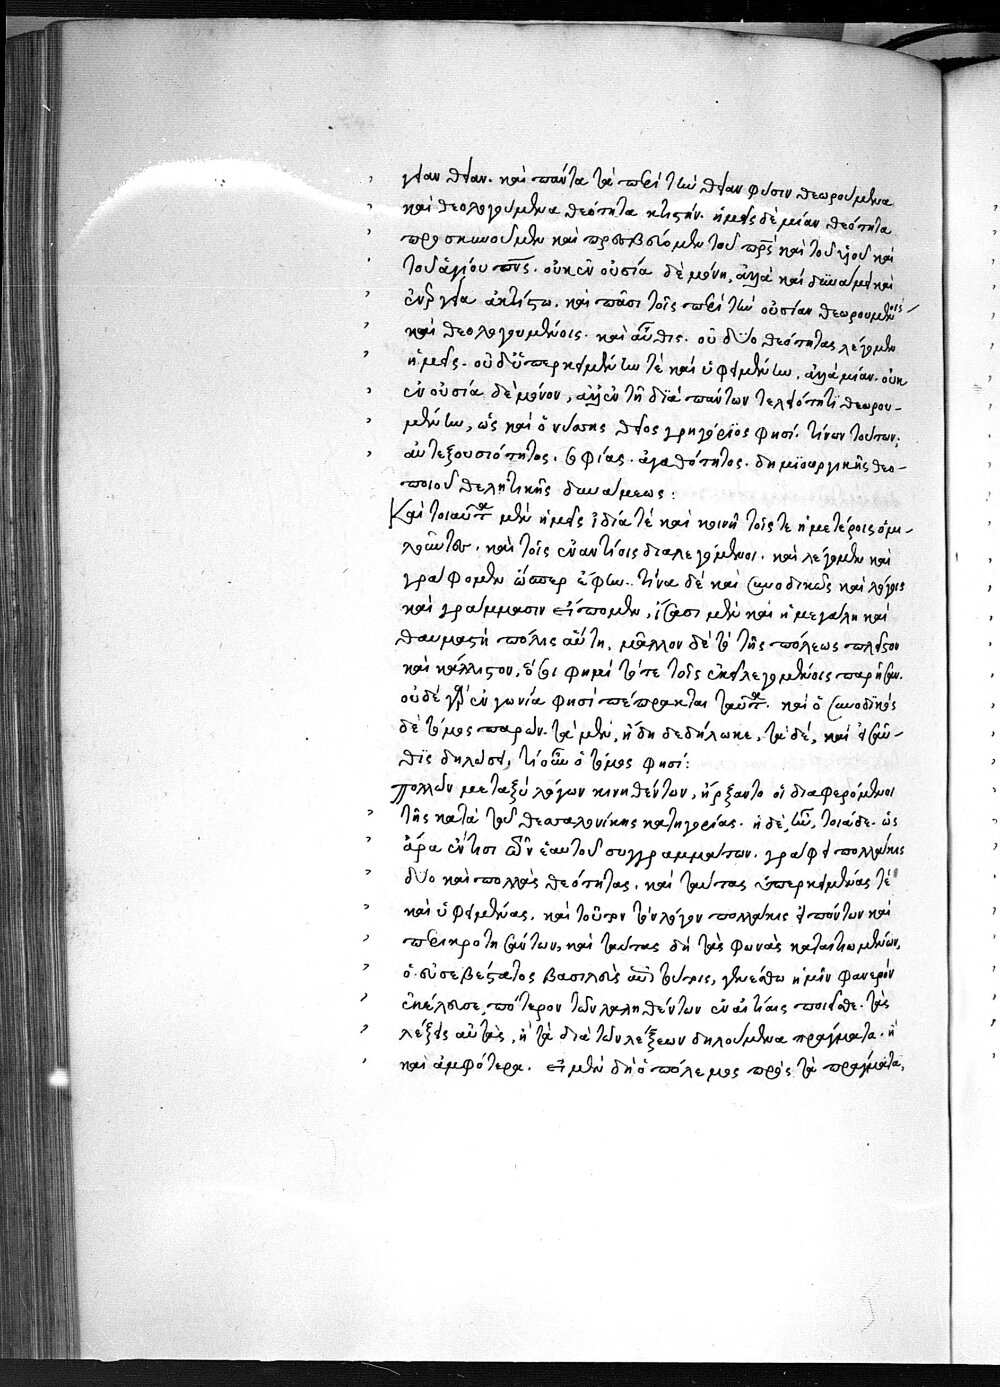 γειαν θείαν. καὶ πάντα τὰ περὶ τὴν θείαν φύσιν θεωρούμενα
καὶ θεολογούμενα θεότητα κτιστήν. ἡμεῖς δὲ μίαν θεότητα
προσκυνοῦμεν καὶ πρεσβεύομεν τοῦ πρς καὶ τοῦ υἱοῦ καὶ
τοῦ ἁγίου πνς. οὐκ ἐν οὐσία δὲ μόνη, ἀλλὰ καὶ δυνάμει καὶ
ἐνεργεία ἀκτίστω. καὶ πᾶσι τοῖς περὶ τὴν οὐσίαν θεωρουμένοις
καὶ θεολογουμένοις. καὶ αὖθις. οὐ δύο θεότητας λέγομεν
ἡμεῖς. οὐδ' ὑπερκειμένην τὲ καὶ ὑφειμένην, ἀλλὰ μίαν. οὐκ
ἐν οὐσία δὲ μόνον, ἀλλ' ἐν τῆ διὰ πάντων τελειότητι θεωρου-
μένην, ὡς καὶ ὁ νύσσης θεῖος γρηγόριος φησί. τίνων τούτων;
αὐτεξουσιότητος. σοφίας. ἀγαθότητος. δημιουργικῆς θεο-
ποιοῦ θελητικῆς δυνάμεως:
Καὶ τοιαῦτα μὲν ἡμεῖς ἰδία τὲ καὶ κοινῆ τοῖς τε ἡμετέροις ὁμι-
λοῦντες. καὶ τοῖς ἐναντίοις διαλεγόμενοι. καὶ λέγομεν καὶ
γράφομεν ὥσπερ ἔφην. τίνα δὲ καὶ συνοδικῶς καὶ λόγοις
καὶ γράμμασιν εἴπομεν, ἴσασι μὲν καὶ ἡ μεγάλη καὶ
θαυμαστὴ πόλις αὕτη, μᾶλλον δὲ τὸ τῆς πόλεως πλεῖστον
καὶ κάλλιστον, ὅσοι φημὶ τότε τοῖς ἐκεῖ λεγομένοις παρῆσαν.
οὐδὲ γὰρ ἐν γωνία φησὶ πέπρακται ταῦτα. καὶ ὁ συνοδικὸς
δὲ τόμος παρών. τὰ μὲν, ἤδη δεδήλωκε, τὰ δὲ, καὶ εἰσαῦ-
θις δηλώσει, τί οὖν ὁ τόμος φησί:
πολλῶν μεταξὺ λόγων κινηθέντων, ἤρξαντο οἱ διαφερόμενοι
τῆς κατὰ τοῦ θεσσαλονίκης κατηγορίας. ἡ δὲ ἦν, τοιάδε. ὡς
ἄρα ἔν τισι τῶν ἑαυτοῦ συγγραμμάτων. γράφει πολλάκις
δύο καὶ πολλὰς θεότητας. καὶ ταύτας ὑπερκειμένας τὲ
καὶ ὑφειμένας. καὶ τοῦτον τὸν λόγον πολλάκις εἰπόντων καὶ
περικροτησάντων, καὶ ταύτας δὴ τὰς φωνὰς καταιτιωμένων,
ὁ εὐσεβέστατος βασιλεὺς αὐτὸ τοῦτο τις, γενέσθω ἡμῖν φανερὸν
ἐκέλευσε, πότερον τῶν λαληθέντων ἐν αἰτίαις ποιεῖσθε. τὰς
λέξεις αὐτὰς, ἢ τὰ διὰ τῶν λέξεων δηλούμενα πράγματα. ἢ
καὶ ἀμφότερα. εἰ μὲν δὴ ὁ πόλεμος πρὸς τὰ πράγματα,